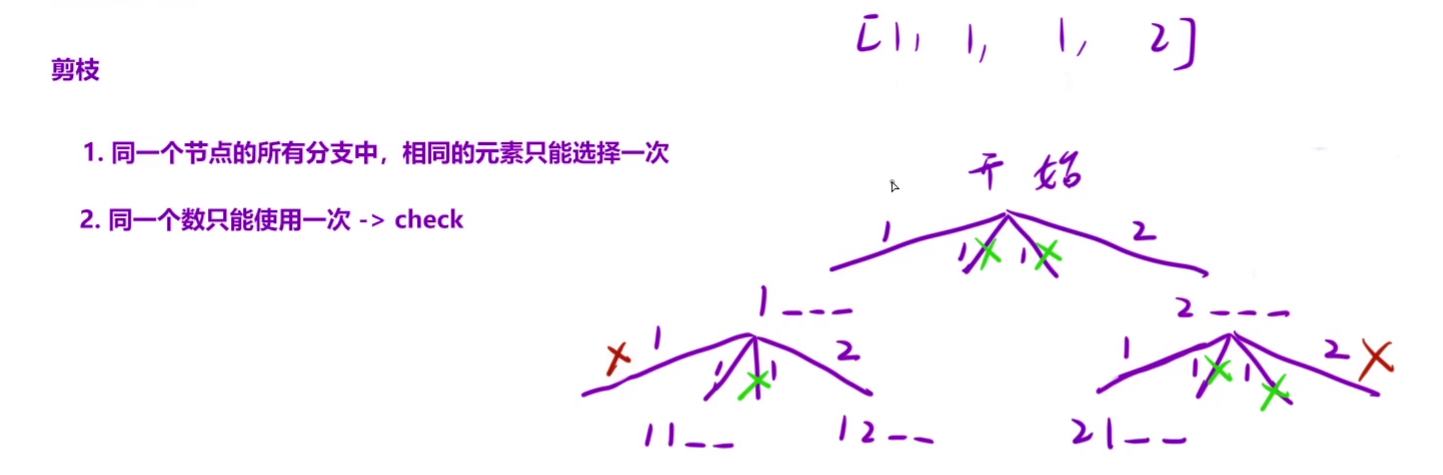 [1, 1, 1, 2]
剪枝
1. 同一个节点的所有分支中，相同的元素只能选择一次
2. 同一个数只能使用一次 -> check
开始
1 1 1 2
1 _ _ _ 2 _ _ _
1 1 1 2 1 1 1 2
1 1 _ _ 1 2 _ _ 2 1 _ _